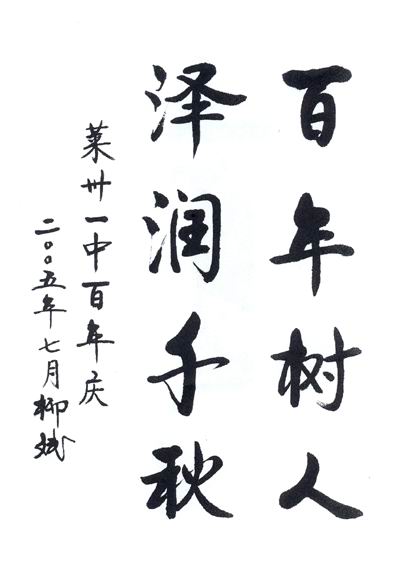 百年树人
泽润千秋
莱州一中百年庆
二〇〇五年七月柳斌